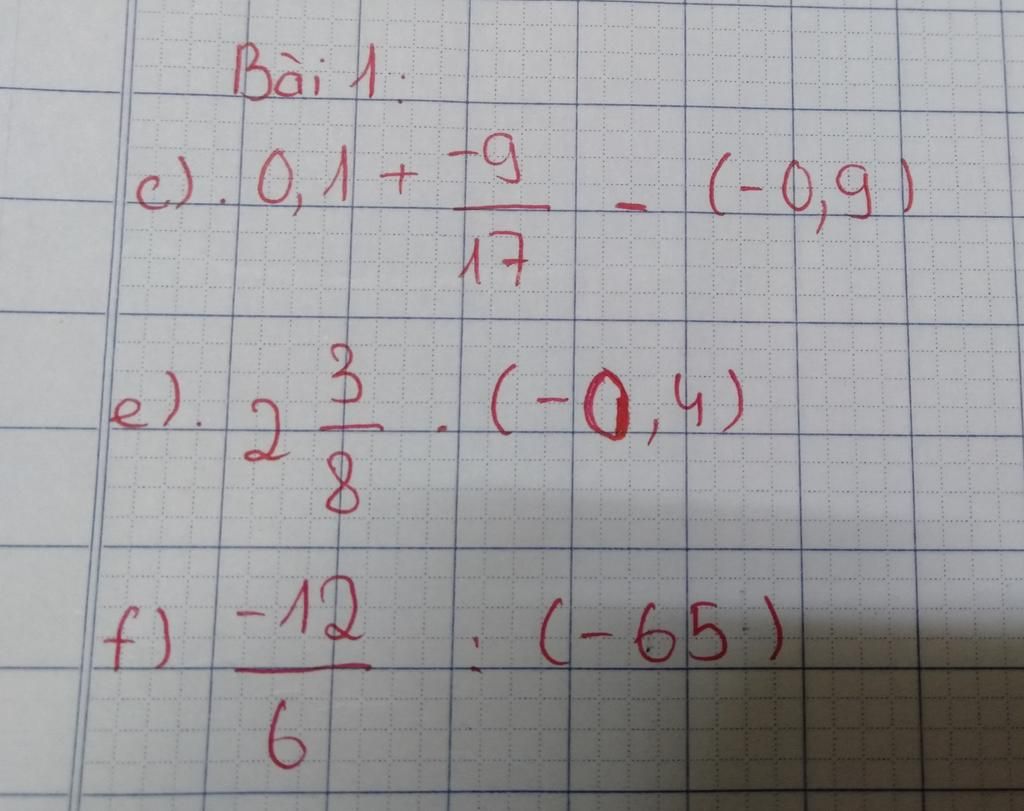 Bài 1:
c). 0,1 + \frac{-9}{17} - (-0,9)
e). 2 \frac{3}{8} . (-0,4)
f) \frac{-12}{6} : (-65)